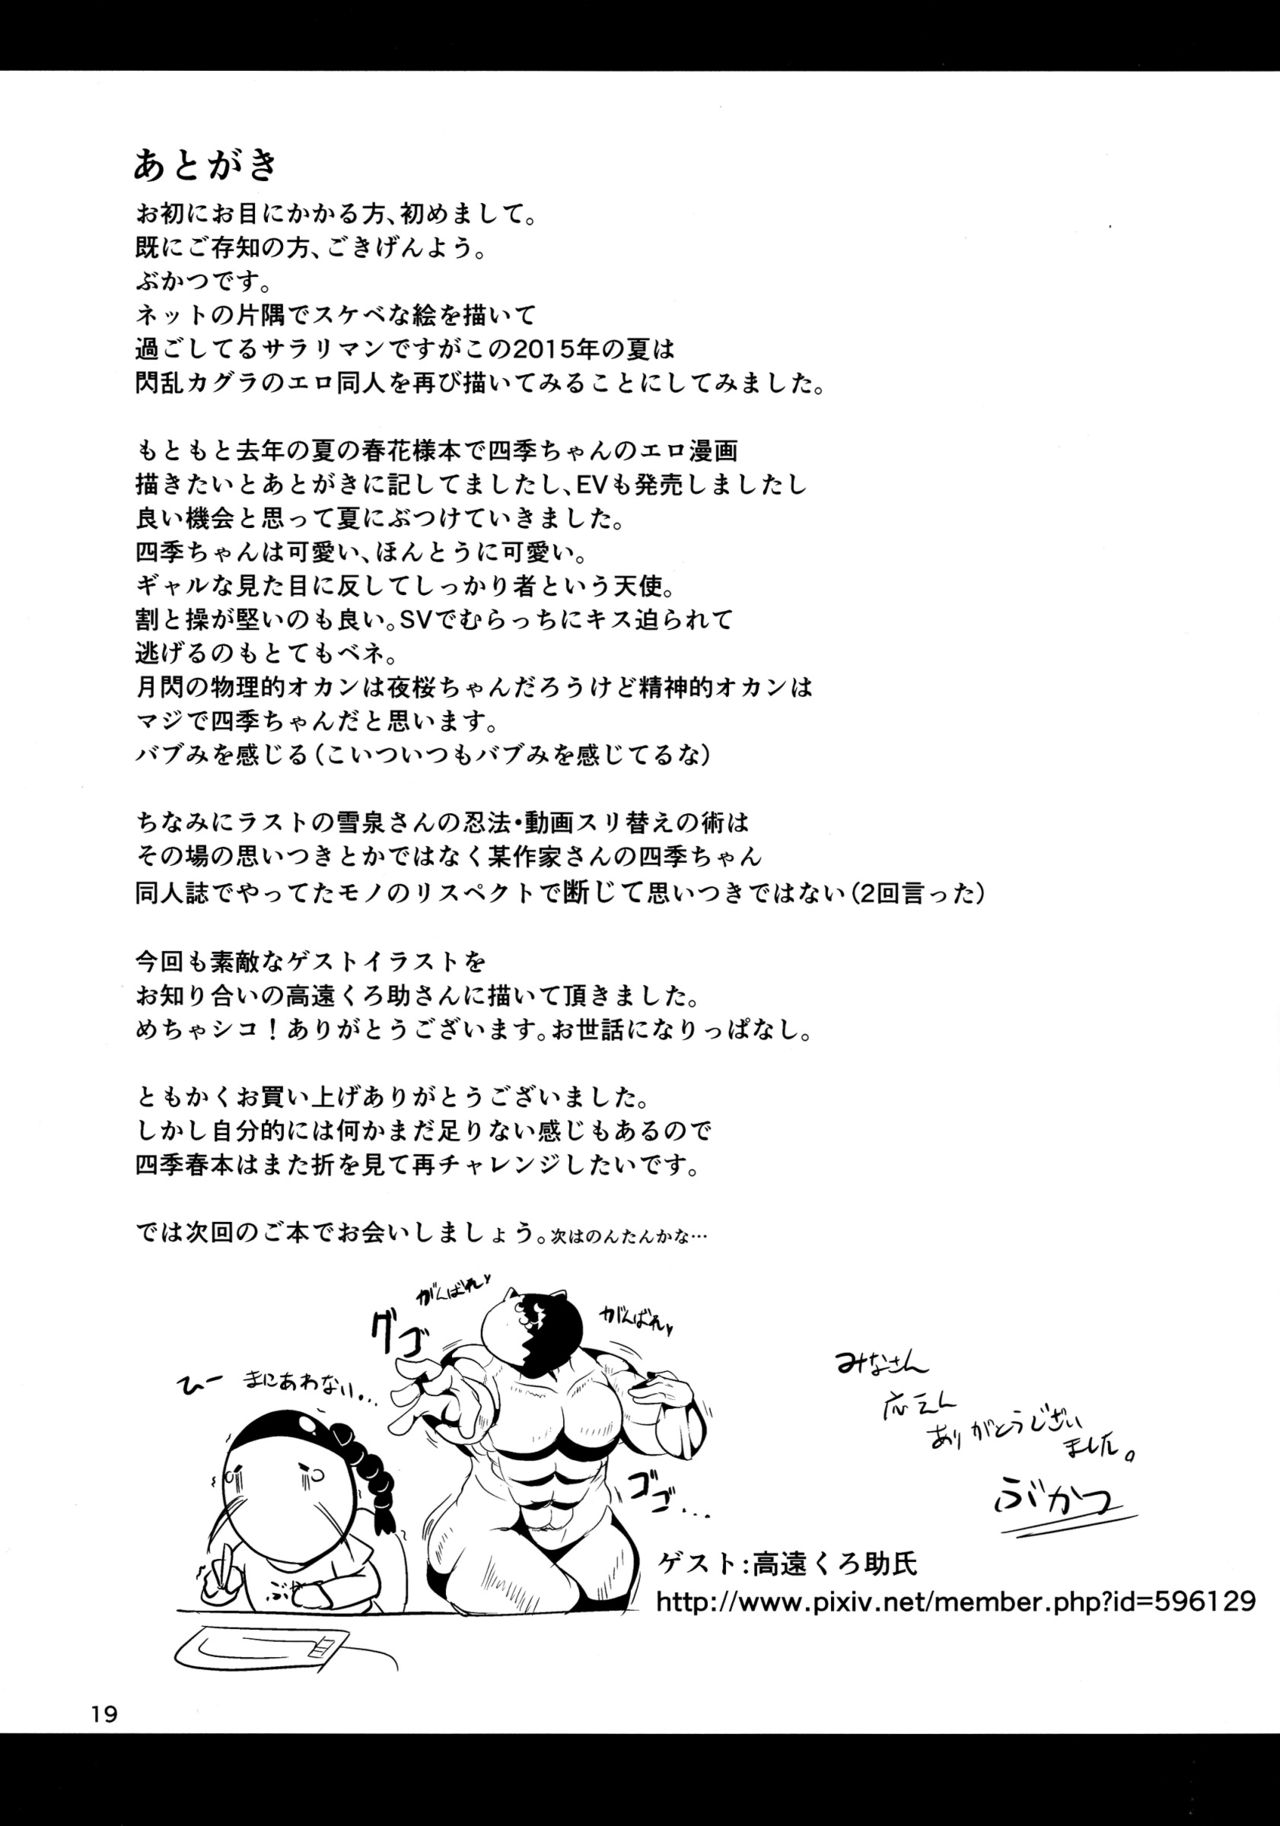 あとがき
お初にお目にかかる方、初めまして。
既にご存知の方、ごきげんよう。
ぶかつです。
ネットの片隅でスケベな絵を描いて
過ごしてるサラリマンですがこの2015年の夏は
閃乱カグラのエロ同人を再び描いてみることにしてみました。
もともと去年の夏の春花様本で四季ちゃんのエロ漫画
描きたいとあとがきに記してましたし、EVも発売しましたし
良い機会と思って夏にぶつけていきました。
四季ちゃんは可愛い、ほんとうに可愛い。
ギャルな見た目に反してしっかり者という天使。
割と操が堅いのも良い。SVでむらっちにキス迫られて
逃げるのもとてもベネ。
月閃の物理的オカンは夜桜ちゃんだろうけど精神的オカンは
マジで四季ちゃんだと思います。
バブみを感じる（こいついつもバブみを感じてるな）
ちなみにラストの雪泉さんの忍法・動画スリ替えの術は
その場の思いつきとかではなく某作家さんの四季ちゃん
同人誌でやってたモノのリスペクトで断じて思いつきではない（2回言った）
今回も素敵なゲストイラストを
お知り合いの高遠くろ助さんに描いて頂きました。
めちゃシコ！ありがとうございます。お世話になりっぱなし。
ともかくお買い上げありがとうございました。
しかし自分的には何かまだ足りない感じもあるので
四季春本はまた折を見て再チャレンジしたいです。
では次回のご本でお会いしましょう。次はのんたんかな…
がんばれ♥
がんばれ♥
グゴゴ
ひー まにあわない...
ゴゴ...
ぶか
みなさん
応えん
ありがとうござい
ました。
ぶかつ
ゲスト：高遠くろ助氏
http://www.pixiv.net/member.php?id=596129
19